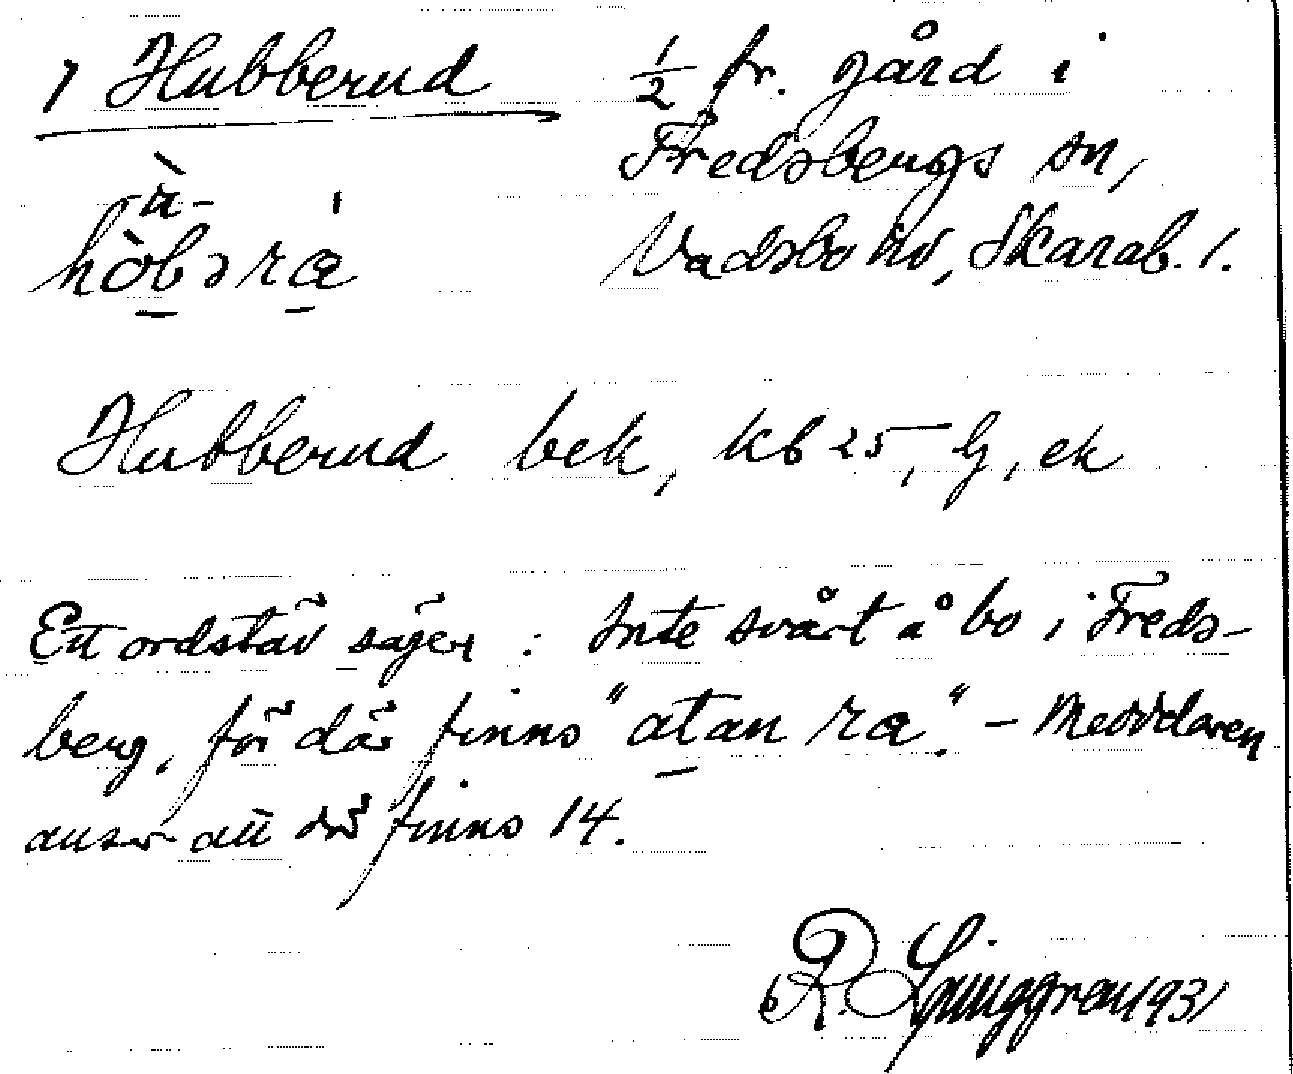 1 Hubberud
1/2 fr. gård i
Fredsbergs sn,
Vadsbo hd, Skarab. l.
à-
hòbəra
Hubberud bek, kb 25, lj, ek
Ett ordstäv säger : Inte svårt å bo i Freds-
berg, för där finns "atan ra". - Meddelaren
anser att där finns 14.
R. Ljunggren 1931